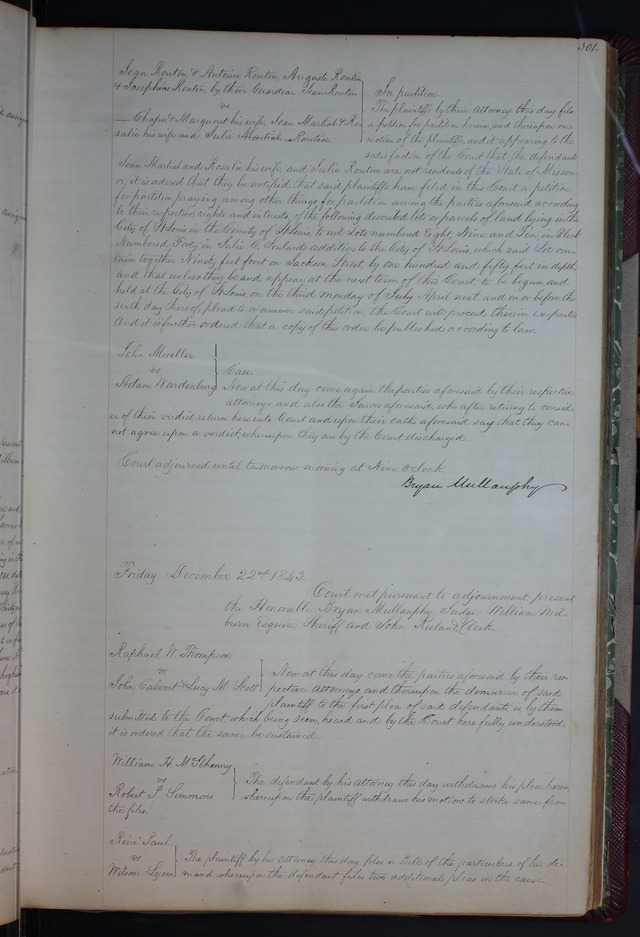 301.
Jean Routin & Antoine Routin, Auguste Routin
& Josephine Routin, by their Guardian Jean Routin
vs
— Chapu & Marguerit his wife, Jean Martial & Ro
salie his wife and Julie Routin
In partition
The plaintiffs by their attorney this day file
a petition for partition herein, and thereupon on
motion of the plaintiffs, and it appearing to the
satisfaction of the Court that the defendants
Jean Martial and Rosalie his wife, and Julie Routin are not residents of the State of Missou
ri, it is ordered that they be notified that said plaintiffs have filed in this Court a petition
for partition, praying among other things for partition among the parties aforesaid according
to their respective rights and interests, of the following described lots or parcels of land lying in the
City of St Louis in the County of St Louis, to wit Lots numbered Eight, Nine and Ten, in Block
Numbered Forty in Julia C. Soulards addition to the City of St Louis, which said Lots con
tain together Ninety feet front on Jackson Street, by one hundred and fifty feet in depth
and that unless they be and appear at the next term of this Court, to be begun and
held at the City of St Louis on the third monday of July April next, and on or before the
sixth day thereof, plead to or answer said petition, the Court will proceed therein ex-parte
And it is further ordered that a copy of this order be published according to law.
John Mueller
vs
Adam Wardenburg
Case
Now at this day come again the parties aforesaid by their respective
attorneys and also the Jurors aforesaid, who after retiring to consid
er of their verdict return here into Court and upon their oaths aforesaid say that they can
not agree upon a verdict, whereupon they are by the Court discharged
Court adjourned until tomorrow morning at Nine o'clock
Bryan Mullanphy
Friday December 22nd 1843.
Court met pursuant to adjournment present
the Honorable Bryan Mullanphy Judge, William Mil-
burn Esquire, Sheriff and John Ruland, Clerk.
Raphael W. Thompson
vs
John Calvert & Lucy M. Scott
Now at this day come the parties aforesaid by their res
pective attorneys and thereupon the demurrer of said
plaintiff to the first plea of said defendants is by them
submitted to the Court, which being seen, heard and by the Court here fully understood,
it is ordered that the same be sustained
William H. McIlhenny
vs
Robert P. Simmons
The defendant by his attorney this day withdraws his pleas herein
whereupon the plaintiff withdraws his motion to strike same from
the files.
René Paul
vs
Wilson Lyons
The plaintiff by his attorney this day files a Bill of the particulars of his de-
mand whereupon the defendant files two additional pleas in the cause